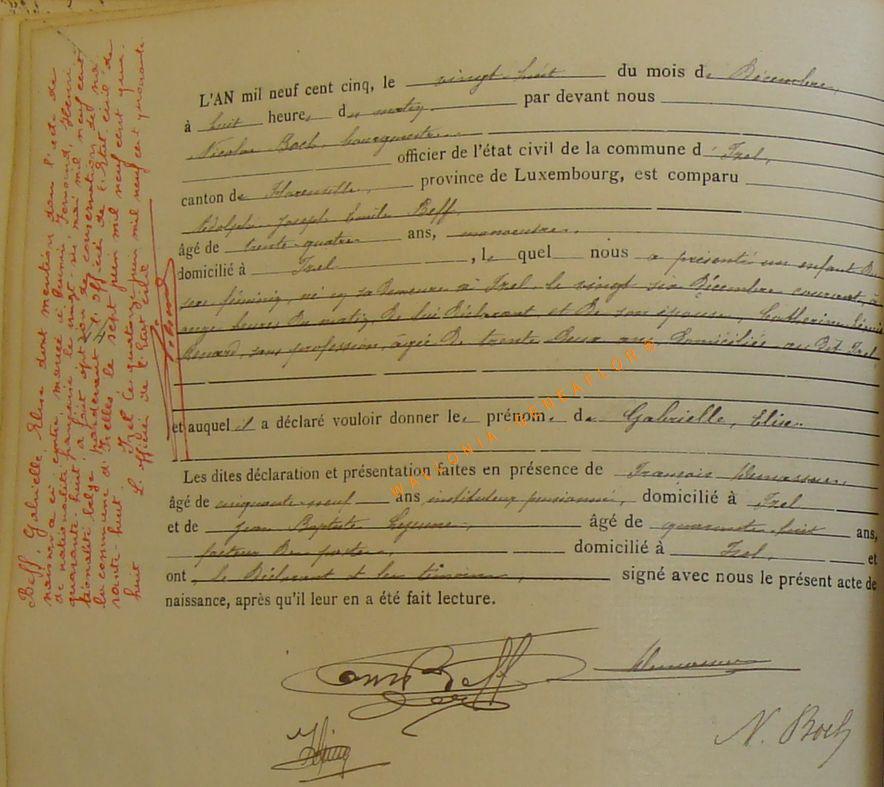 L'AN mil neuf cent cinq, le vingt huit du mois de Décembre,
à huit heures du matin par devant nous
Nicolas Boch, bourgmestre
officier de l'état civil de la commune d'Izel,
canton de Florenville, province de Luxembourg, est comparu
Adolphe Joseph Emile Beff,
âgé de trente-quatre ans, manoeuvre,
domicilié à Izel, lequel nous a présenté un enfant du
sexe féminin, né en sa demeure à Izel, le vingt six Décembre courant, à
onze heures du matin, de lui déclarant et de son épouse, Catherine
Renard, sans profession, âgée de trente deux ans, domiciliée au dit Izel
et auquel il a déclaré vouloir donner les prénoms de Gabrielle, Elise.
Les dites déclaration et présentation faites en présence de François
âgé de cinquante-neuf ans instituteur pensionné, domicilié à Izel
et de Jean Baptiste Lejeune, âgé de quarante huit ans,
facteur des postes, domicilié à Izel, et
ont le déclarant et les témoins, signé avec nous le présent acte de
naissance, après qu'il leur en a été fait lecture.
Beff
N. Boch
Beff, Gabrielle Elise dont mention dans l'acte de
naissance ci contre, mariée à
de nationalité française le onze mai mil neuf cent
quarante-huit a fait option de conservation de na
tionalité belge pardevant l'officier de l'état civil de
la commune d'Ixelles le sept juin mil neuf cent qua
rante-huit. Izel le quatorze juin mil neuf cent quarante
huit L'officier de l'état civil
WALLONIA - GENEAFLORE